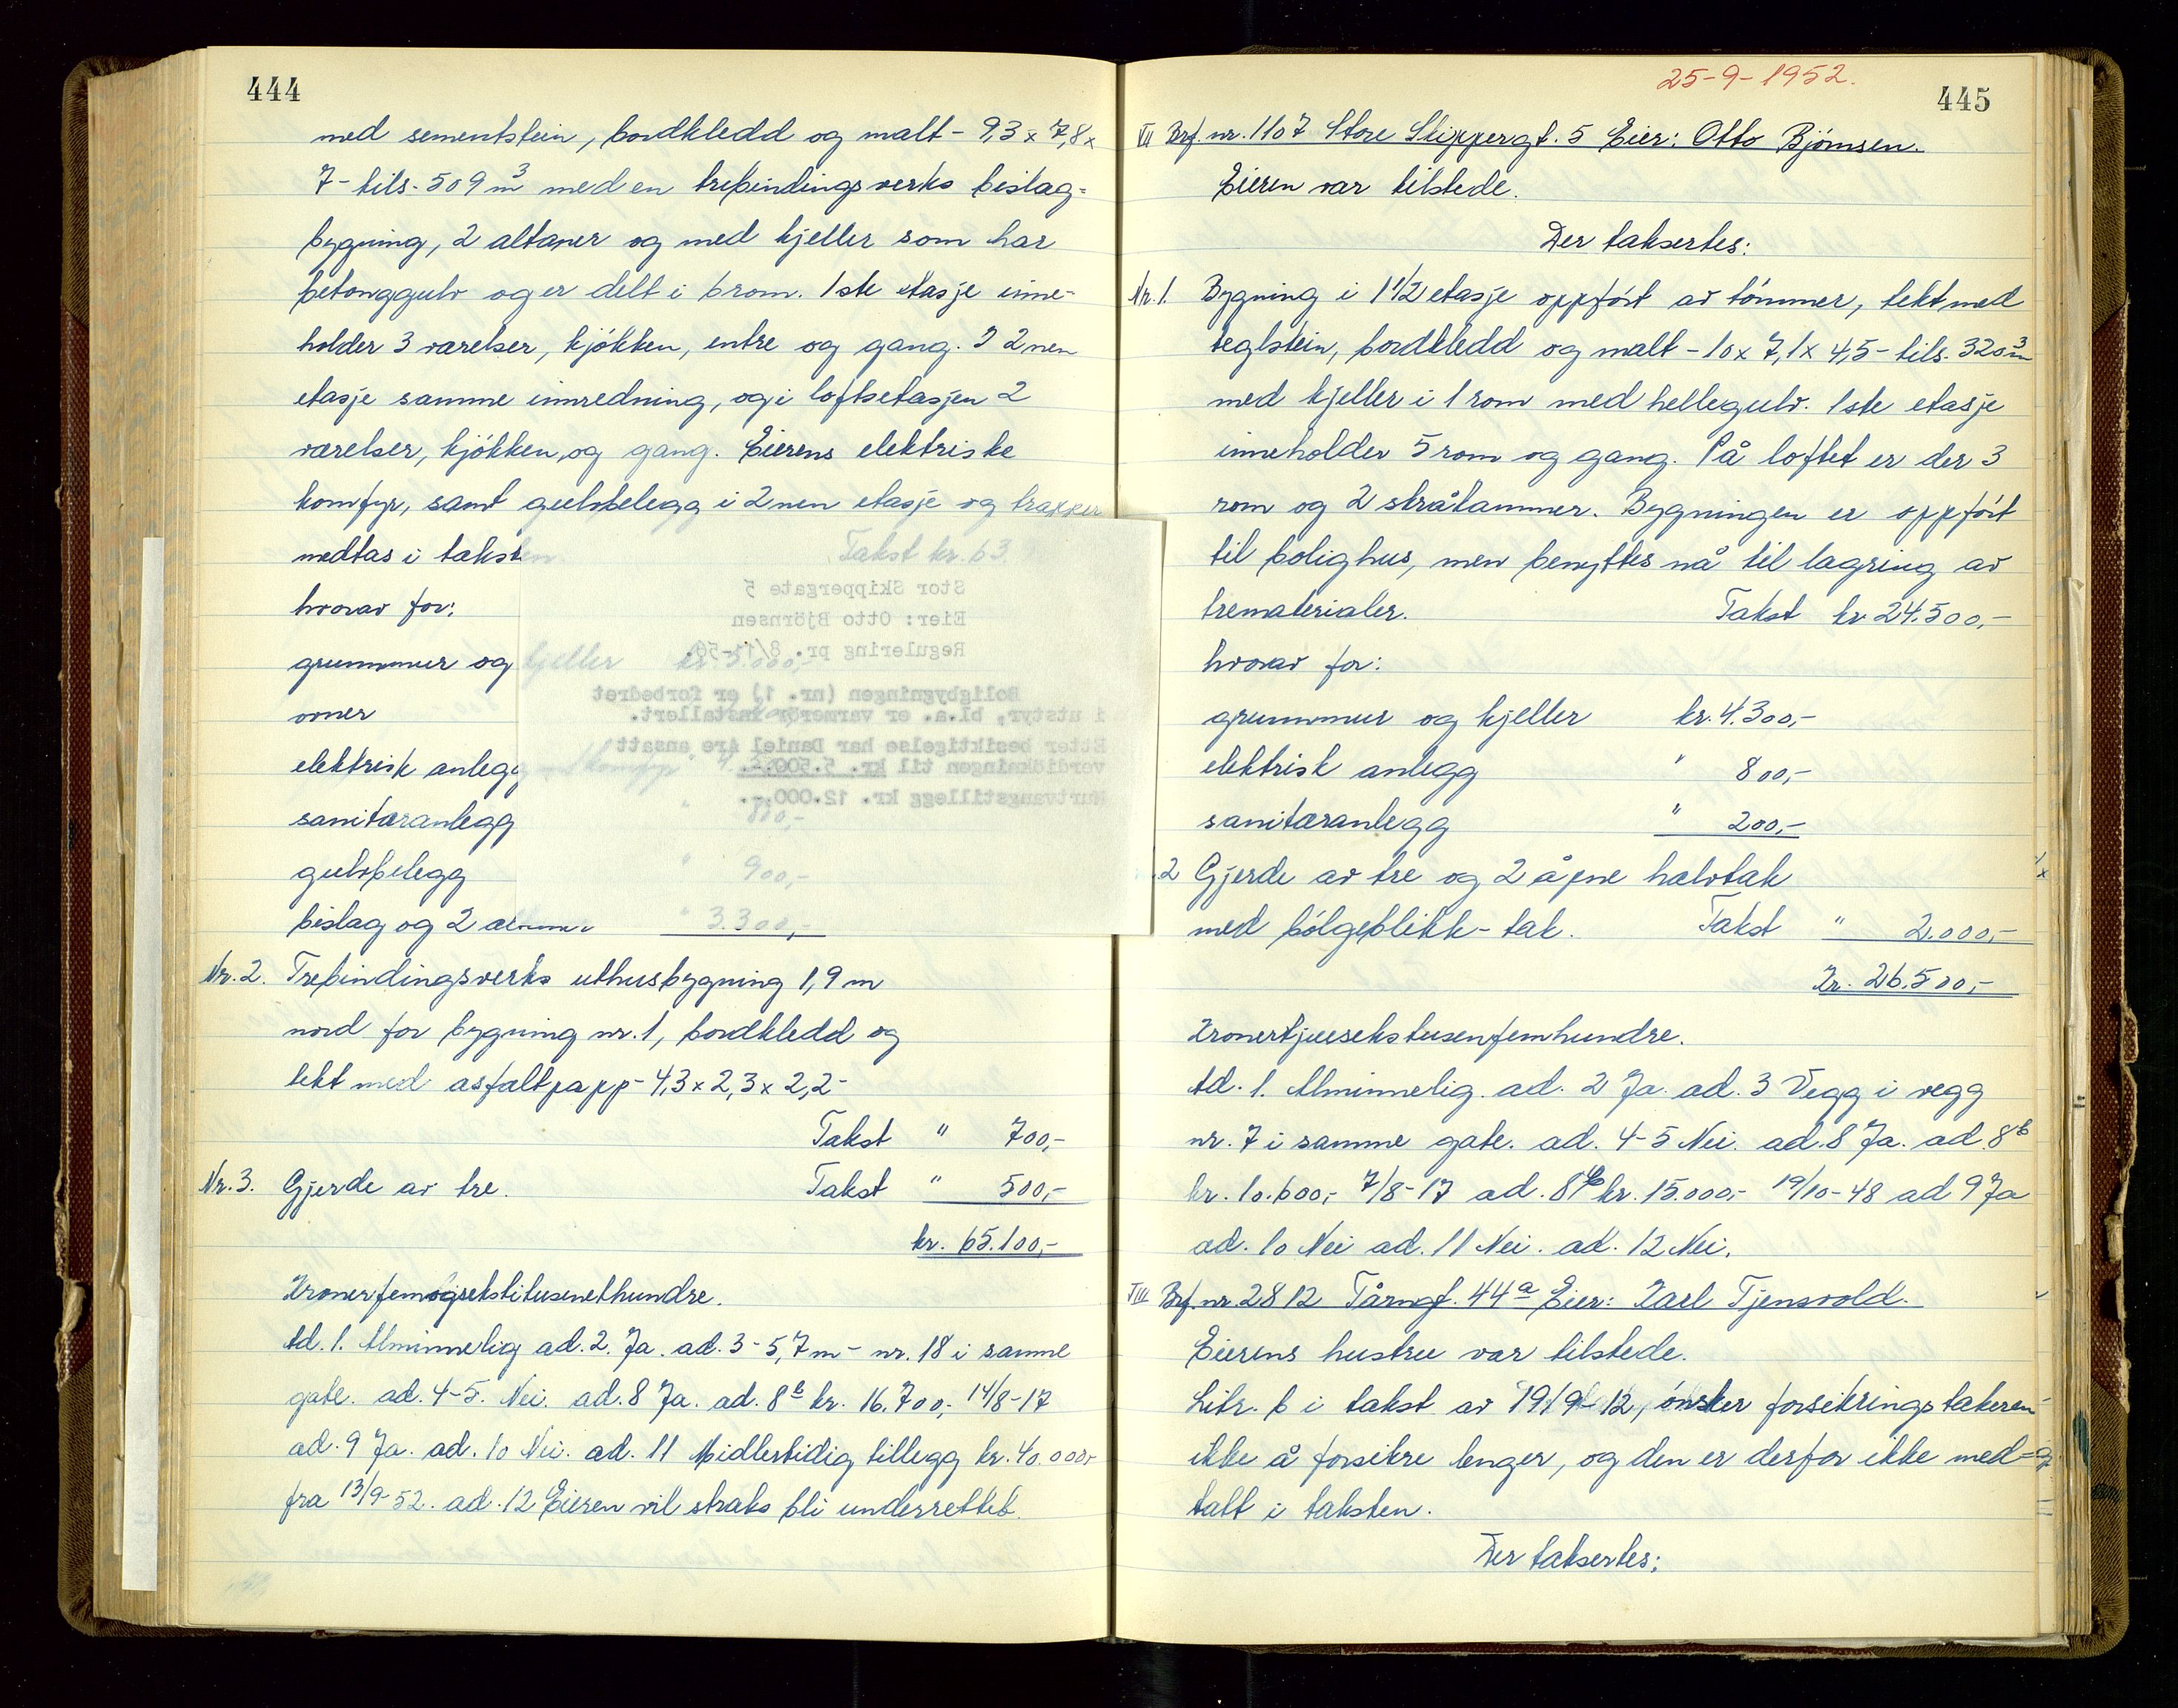 444
med sementstein, bordkledd og malt - 9,3 x 7,8 x
7 - tils. 509 m³ med en trebindingsverks bislag-
bygning, 2 altaner og med kjeller som har
betonggulv og er delt i 6 rom. 1ste etasje inne-
holder 3 værelser, kjøkken, entre og gang. I 2nen
etasje samme innredning, og i loftsetasjen 2
værelser, kjøkken, og gang. Eierens elektriske
komfyr, samt gulvbelegg i 2nen etasje og trapper
medtas i taksten. Takst kr. 63.
hvorav for:
grunnmur og kjeller kr. 5.000,-
ovner
elektrisk anlegg
sanitæranlegg 800,-
gulvbelegg " 900,-
bislag og 2 " 3.300,-
Stor Skippergate 5
Eier: Otto Björnsen
Regulering pr. 8/11-56.
Boligbygningen (nr. 1) er forbedret
i utstyr, bl.a. er varmerör installert.
Etter besiktigelse har Daniel Are ansatt
verdiökningen til kr. 5.500.-.
Murtvangstillegg kr. 12.000.-.
Nr. 2. Trebindingsverks uthusbygning 1,9 m
nord for bygning nr. 1, bordkledd og
tekt med asfaltpapp - 4,3 x 2,3 x 2,2 -
Takst " 700,-
Nr. 3. Gjerde av tre. Takst " 500,-
kr. 65.100,-
Kronerfemogsekstitusenethundre.
Ad. 1. Alminnelig ad. 2. Ja. ad. 3 - 5,7 m - nr. 18 i samme
gate. ad. 4-5. Nei. ad. 8 Ja. ad. 8 b kr. 16.700,- 14/8-17
ad. 9 Ja. ad. 10 Nei. ad. 11 Midlertidig tillegg kr. 40.000,-
fra 13/9-52. ad. 12 Eieren vil straks bli underrettet.
25-9-1952.
445
VII Brf. nr. 1107 Store Skippergt. 5 Eier: Otto Bjørnsen.
Eieren var tilstede.
Der taksertes:
Nr. 1. Bygning i 1 1/2 etasje oppført av tømmer, tekt med
teglstein, bordkledd og malt - 10 x 7,1 x 4,5 - tils. 320 m³
med kjeller i 1 rom med hellegulv. 1ste etasje
inneholder 5 rom og gang. På loftet er der 3
rom og 2 skråkammer. Bygningen er oppført
til bolighus, men benyttes nå til lagring av
trematerialer. Takst kr 24.500,-
hvorav for:
grunnmur og kjeller kr. 4.300,-
elektrisk anlegg " 800,-
sanitæranlegg " 200,-
2 Gjerde av tre og 2 åpne halvtak
med bølgeblikk-tak. Takst " 2.000,-
Kr. 26.500,-
Kronertjuesekstusenfemhundre.
Ad. 1. Alminnelig. ad. 2 Ja. ad. 3 Vegg i vegg
nr. 7 i samme gate. ad. 4-5 Nei. ad. 8 Ja. ad. 8 b
kr. 10.600,- 7/8-17 ad. 8 kr. 15.000,- 19/10-48 ad 9 Ja
ad. 10 Nei ad. 11 Nei. ad. 12 Nei.
VIII Brf. nr 2812 Tårngt. 44 a Eier: Karl Tjensvold.
Eierens hustru var tilstede.
Litr. b i takst av 19/9-12, ønsker forsikringstakeren
ikke å forsikre lenger, og den er derfor ikke med-
tatt i taksten.
Der taksertes: